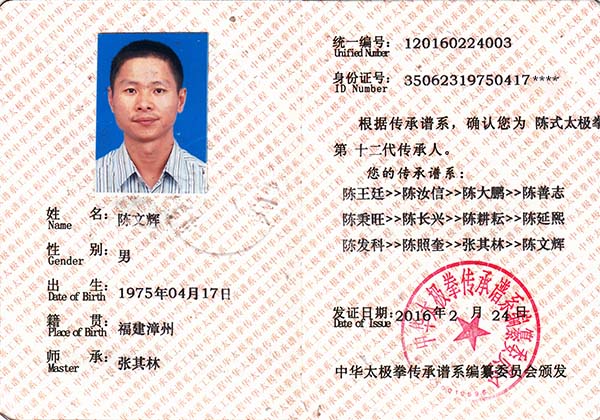 统一编号: 120160224003
Unified Number
身份证号: 35062319750417****
ID Number
根据传承谱系,确认您为 陈式太极拳
第 十二代传承人。
您的传承谱系:
陈王廷>>陈汝信>>陈大鹏>>陈善志
陈秉旺>>陈长兴>>陈耕耘>>陈延熙
陈发科>>陈照奎>>张其林>>陈文辉
发证日期: 2016年2月24日
Date of Issue
中华太极拳传承谱系编纂委员会
中华太极拳传承谱系编纂委员会颁发
姓名: 陈文辉
Name
性别: 男
Gender
出生: 1975年04月17日
Date of Birth
籍贯: 福建漳州
Place of Birth
师承: 张其林
Master